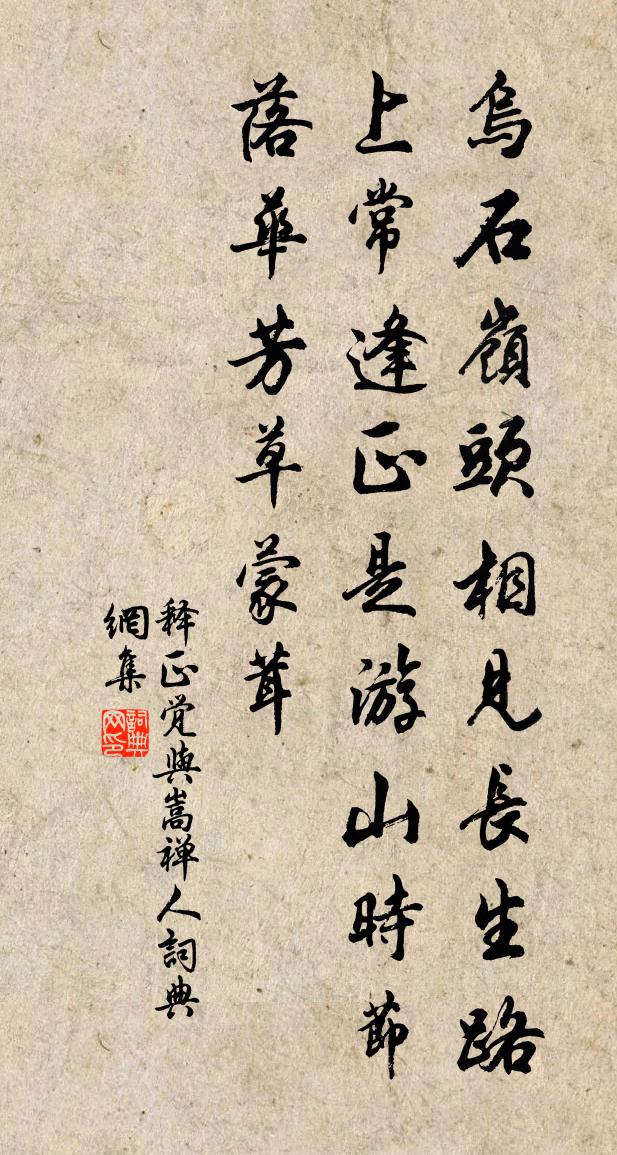 烏石嶺頭相見長生路
上常逢正是游山時節
落華芳草蒙茸
释正覚與嵩禅人詞典
網集
詞典
网印